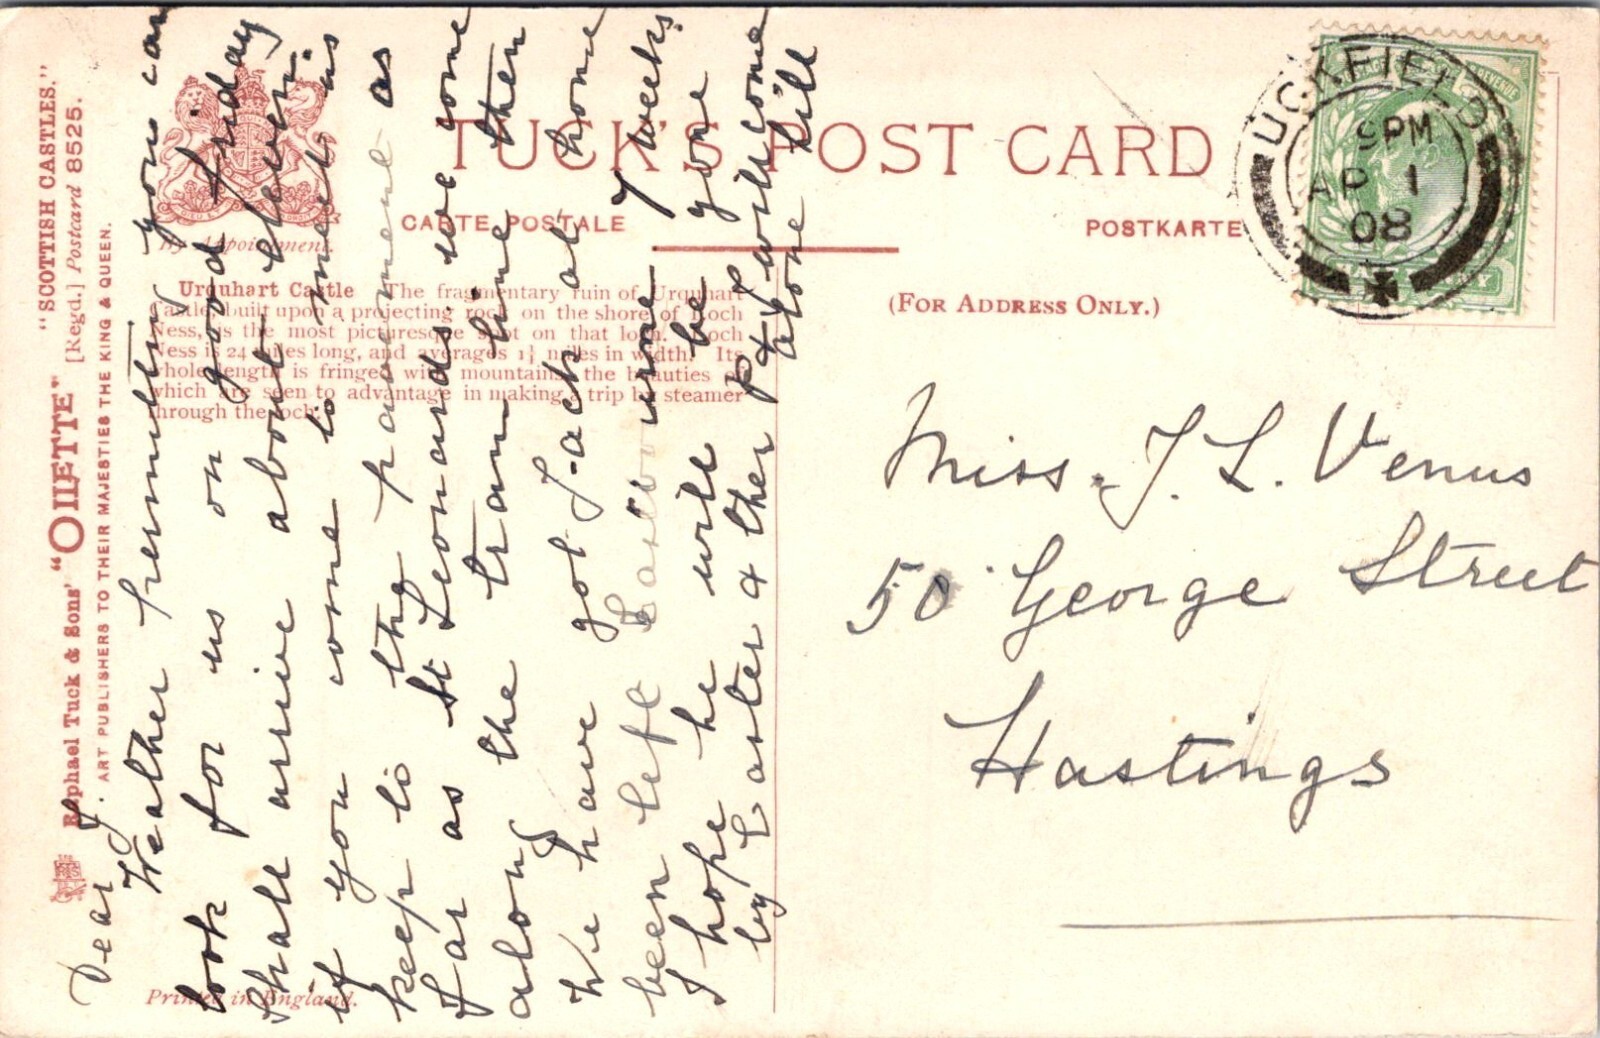 "SCOTTISH CASTLES."
Raphael Tuck & Sons' "OILETTE" [Regd.] Postcard 8525.
ART PUBLISHERS TO THEIR MAJESTIES THE KING & QUEEN.
By Appointment.
TUCK'S POST CARD
CARTE POSTALE
POSTKARTE
(FOR ADDRESS ONLY.)
Urquhart Castle The fragmentary ruin of Urquhart
Castle, built upon a projecting rock on the shore of Loch
Ness, is the most picturesque spot on that loch. Loch
Ness is 24 miles long, and averages 1¼ miles in width. Its
whole length is fringed with mountains, the beauties of
which are seen to advantage in making a trip by steamer
through the loch.
Printed in England.
Dear J.
Weather permitting you can
look for us on good friday
shall arrive about eleven.
if you come to meet us
keep to the pavement as
far as St Leonards we come
along the tram line then
We have got J-ach at home
been left 7 weeks
I hope he will be gone
by Easter & ther P & J will come
alone till
UCKFIELD
5 PM
AP 1
08
Miss. J. L. Venus
50 George Street
Hastings